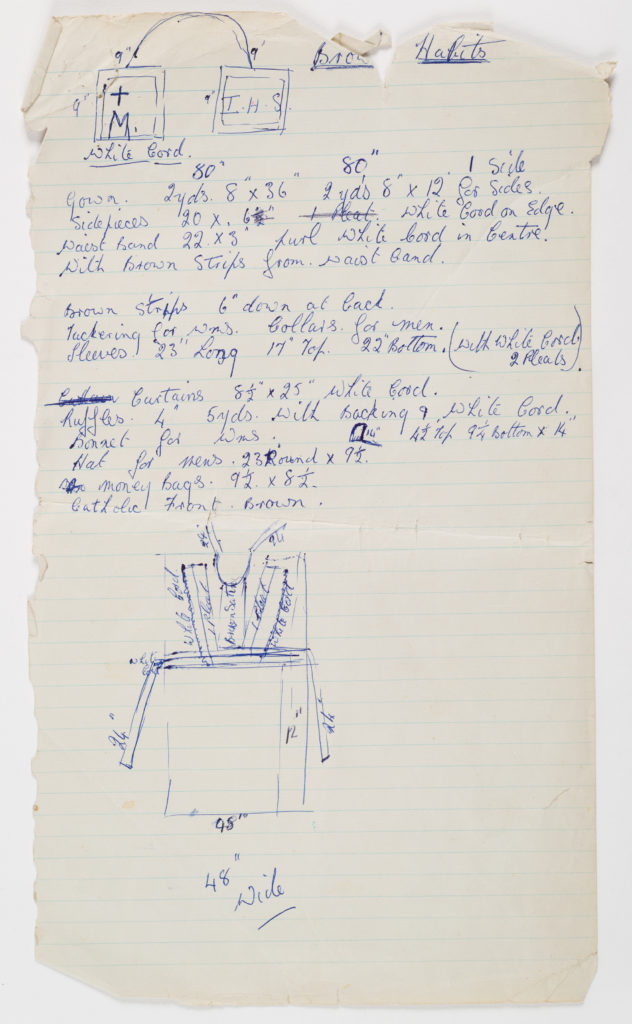 Brow Habits
9" 9"
9" + M. 9" I.H.S.
White Cord.
80" 80" 1 Side
Gown. 2yds. 8" x 36" 2 yds 8" x 12. for Sides.
Sidepieces 20 x. 6½" 1 Pleat. White Cord on Edge.
Waist Band 22 x 3" purl White Cord in Centre.
With Brown Strips from. waist band.
Brown Stripps 6" down at back.
Tuckering for wms. Collars. for men.
Sleeves 23" Long 17" Top. 22" Bottom. (with White Cord. 2 Pleats).
Curtains 8½" x 25" White Cord.
Ruffles. 4" 5yds. with Backing & White Cord.
Bonnet for wms. 14" 4½ Top 9¼ Bottom x 14"
Hat for mens. 23 Round x 9½.
money Bags. 9½. x 8½.
Catholic Front. Brown.
24 24
White Cord 1 Pleat Brown Satin 1 Pleat White Cord
White
24" 12" 24"
48"
48" Wide